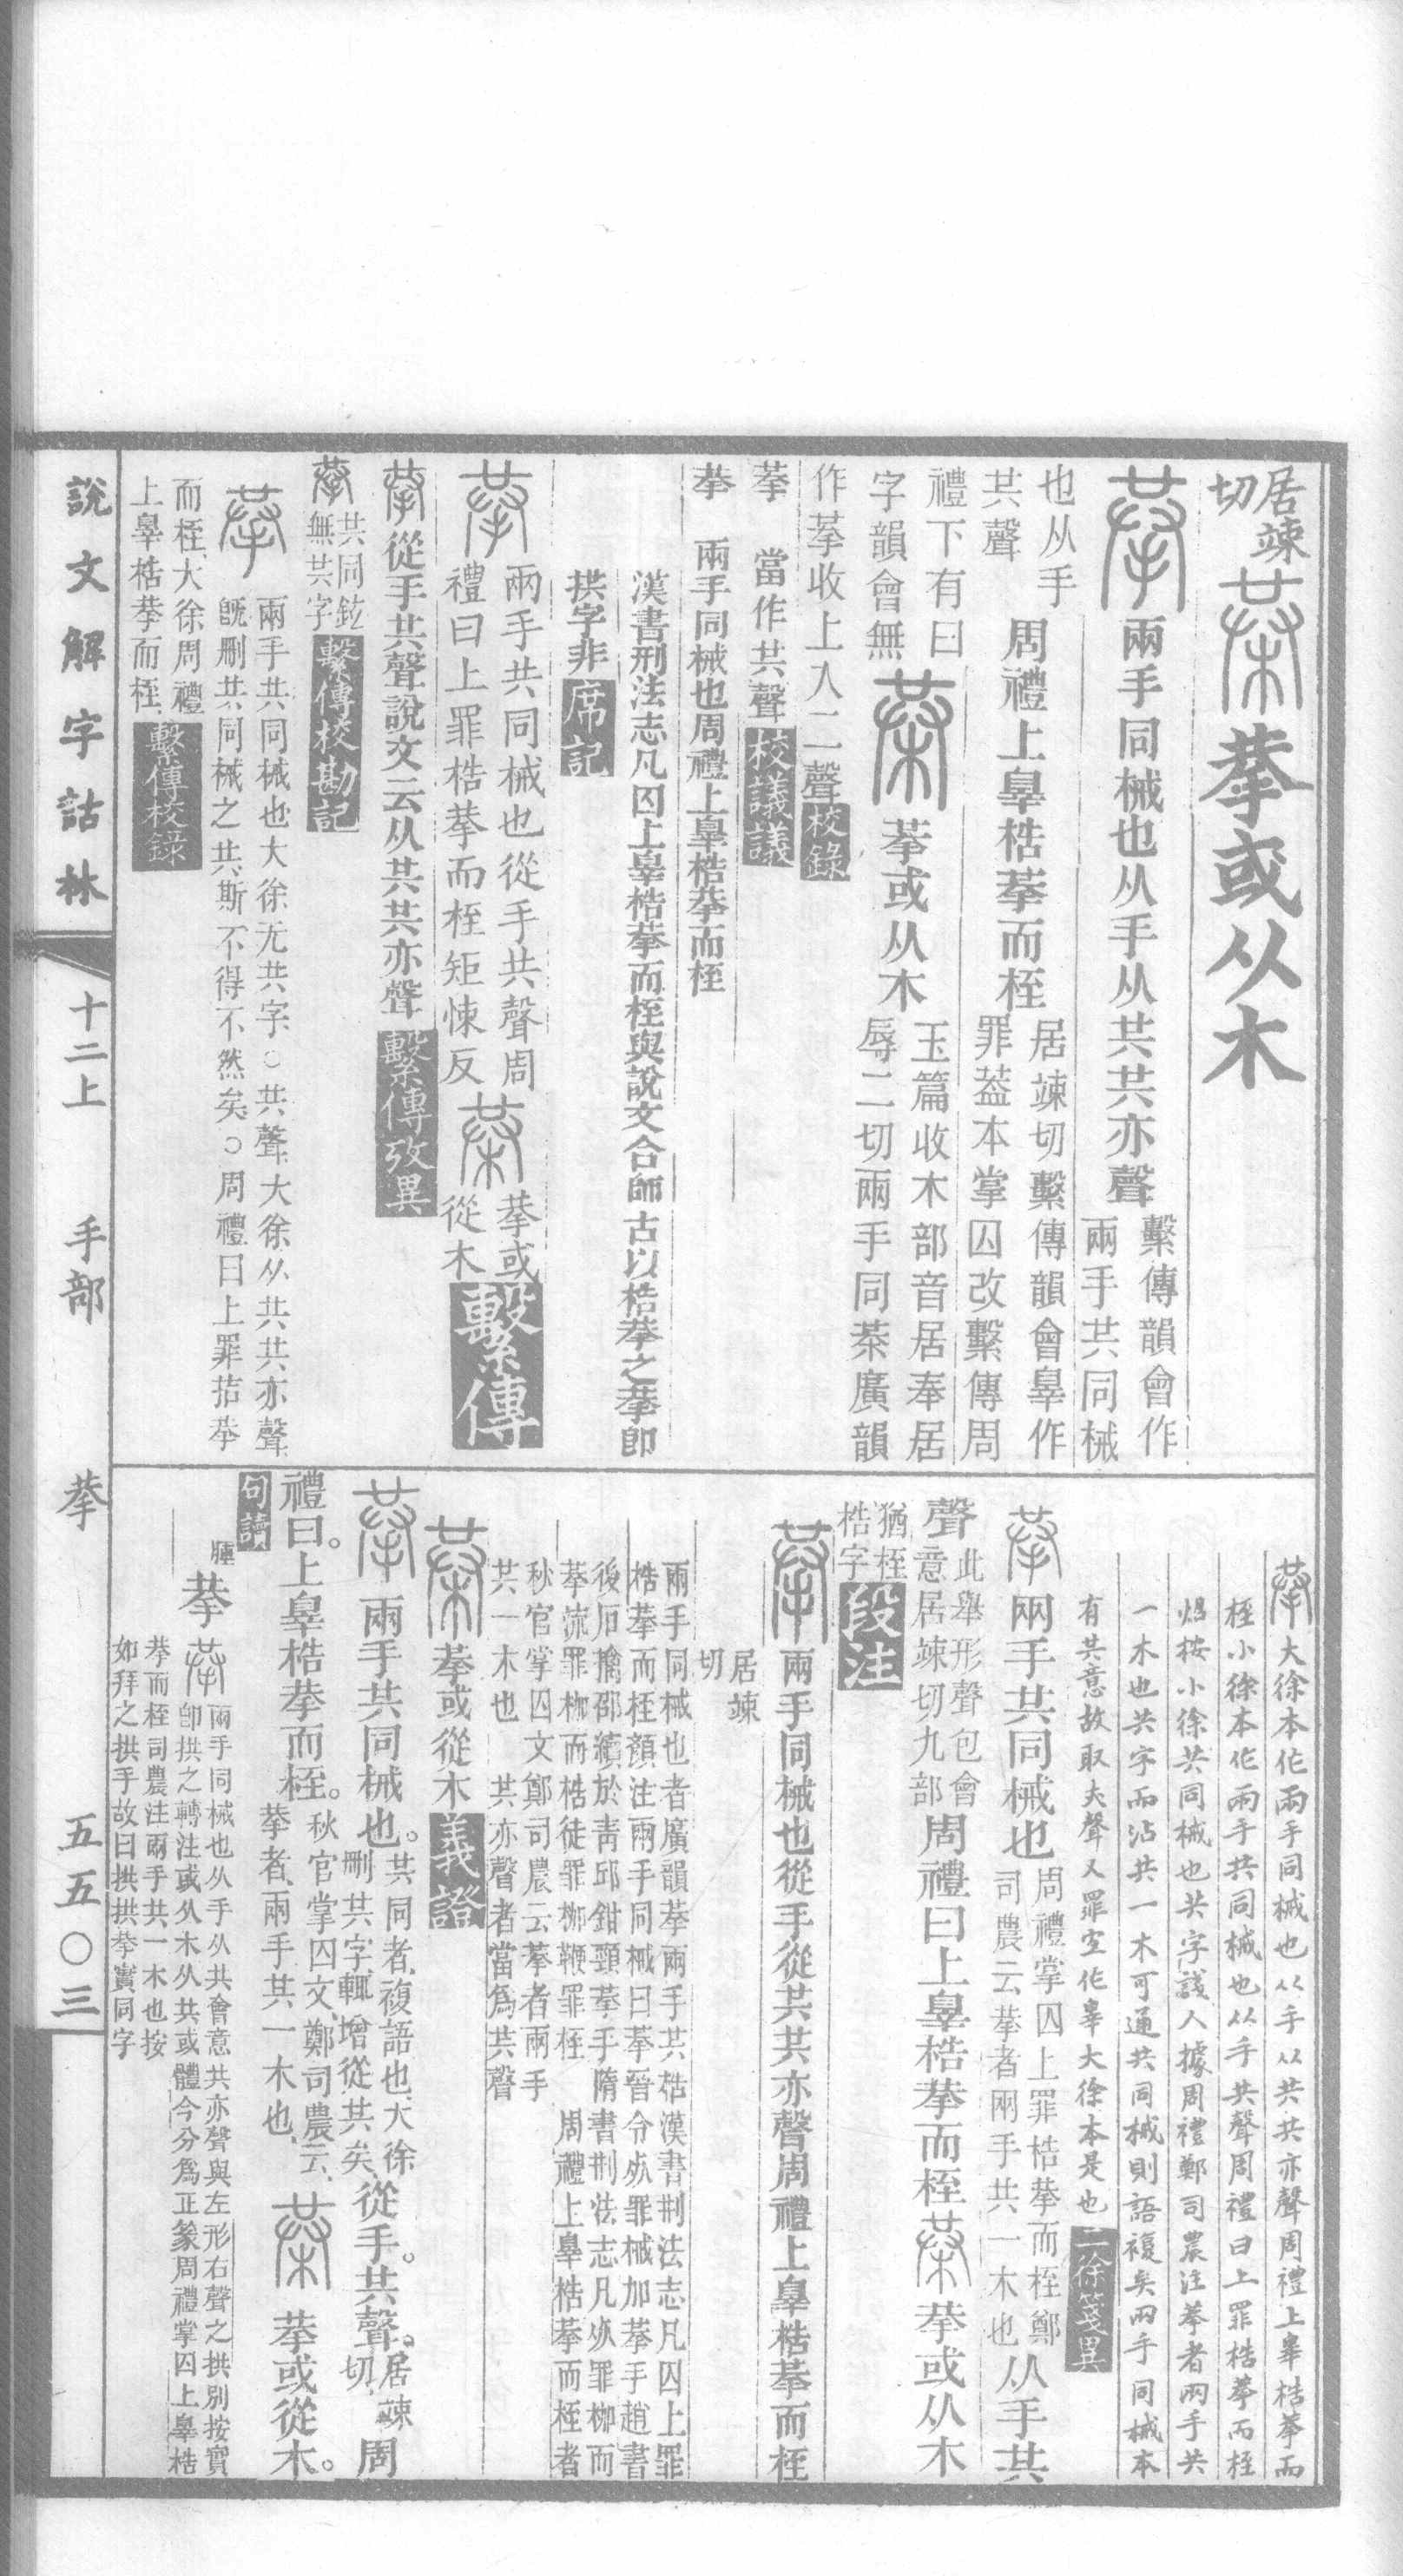 居竦
切
𢪋拲或从木
拲兩手同械也从手从共共亦聲
繫傳韻會作
兩手共同械
也从手
共聲
周禮上辠梏拲而桎
居竦切繫傳韻會辠作
罪葢本掌囚改繫傳周
禮下有曰
字韻會無
𢪋拲或从木
玉篇收木部音居奉居
辱二切兩手同𢪋廣韻
作拲收上入二聲校錄
拲 當作共聲校議議
拲 兩手同械也周禮上辠梏拲而桎
漢書刑法志凡囚上辠梏拲而桎與說文合師古以梏拲之拲即
拱字非席記
拲
兩手共同械也從手共聲周
禮曰上罪梏拲而桎矩悚反
𢪋
拲或
從木
繫傳
拲從手共聲說文云从共共亦聲繫傳攷異
拲
共同鉉
無共字
繫傳校勘記
拲
兩手共同械也大徐无共字○共聲大徐从共共亦聲
旣刪共同械之共斯不得不然矣○周禮曰上罪拮拲
而桎大徐周禮
上辠梏拲而桎
繫傳校錄
拲大徐本作兩手同械也从手从共共亦聲周禮上辠梏拲而
桎小徐本作兩手共同械也从手共聲周禮曰上罪梏拲而桎
煟按小徐共同械也共字淺人據周禮鄭司農注拲者兩手共
一木也共字而沾共一木可通共同械則語複矣兩手同械本
有共意故取共聲又罪宜作辠大徐本是也二徐箋異
拲兩手共同械也
周禮掌囚上罪梏拲而桎鄭
司農云拲者兩手共一木也
从手共
聲
此舉形聲包會
意居竦切九部
周禮曰上辠梏拲而桎𢪋拲或从木
猶桎
梏字
段注
拲兩手同械也從手從共共亦聲周禮上辠梏拲而桎
居竦
切
兩手同械也者廣韻拲兩手共梏漢書刑法志凡囚上罪
梏拲而桎顏注兩手同械曰拲晉令㱾罪械加拲手趙書
後石擒邵續於青邱鉗頸拲手隋書刑法志凡㱾罪枷而
拲流罪枷而梏徒罪枷鞭罪桎 周禮上辠梏拲而桎者
秋官掌囚文鄭司農云拲者兩手
共一木也 共亦聲者當爲共聲
𢪋拲或從木義證
拲兩手共同械也。
共同者、複語也、大徐
刪共字、輒增從共矣、
從手。共聲。
居竦
切、
周
禮曰。上辠梏拲而桎。
秋官掌囚文、鄭司農云、
拲者、兩手共一木也、
𢪋 拲或從木。
句讀
拲
兩手同械也从手从共會意共亦聲與左形右聲之拱別按實
卽拱之轉注或从木从共或體今分爲正篆周禮掌囚上辠梏
拲而桎司農注兩手共一木也按
如拜之拱手故曰拱拱拲實同字
說文解字詁林
十二上
手部
拲
五五〇三